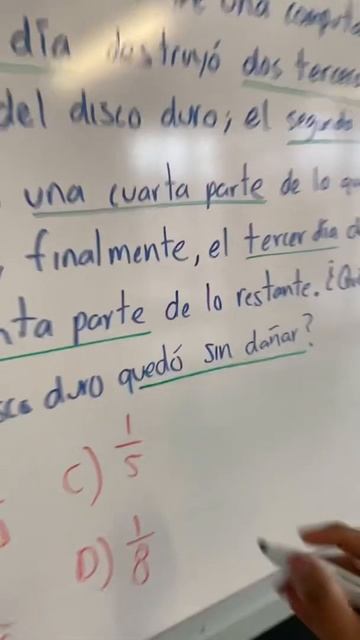 una
día destruyó dos
del disco duro; el segundo
una cuarta parte de lo
finalmente, el tercer día
parte de lo restante.
duro quedó sin dañar?
C) 1/5
D) 1/8